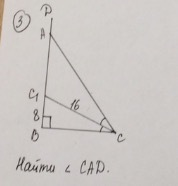 3
D
A
C₁
16
8
B
C
Найти < CAD.